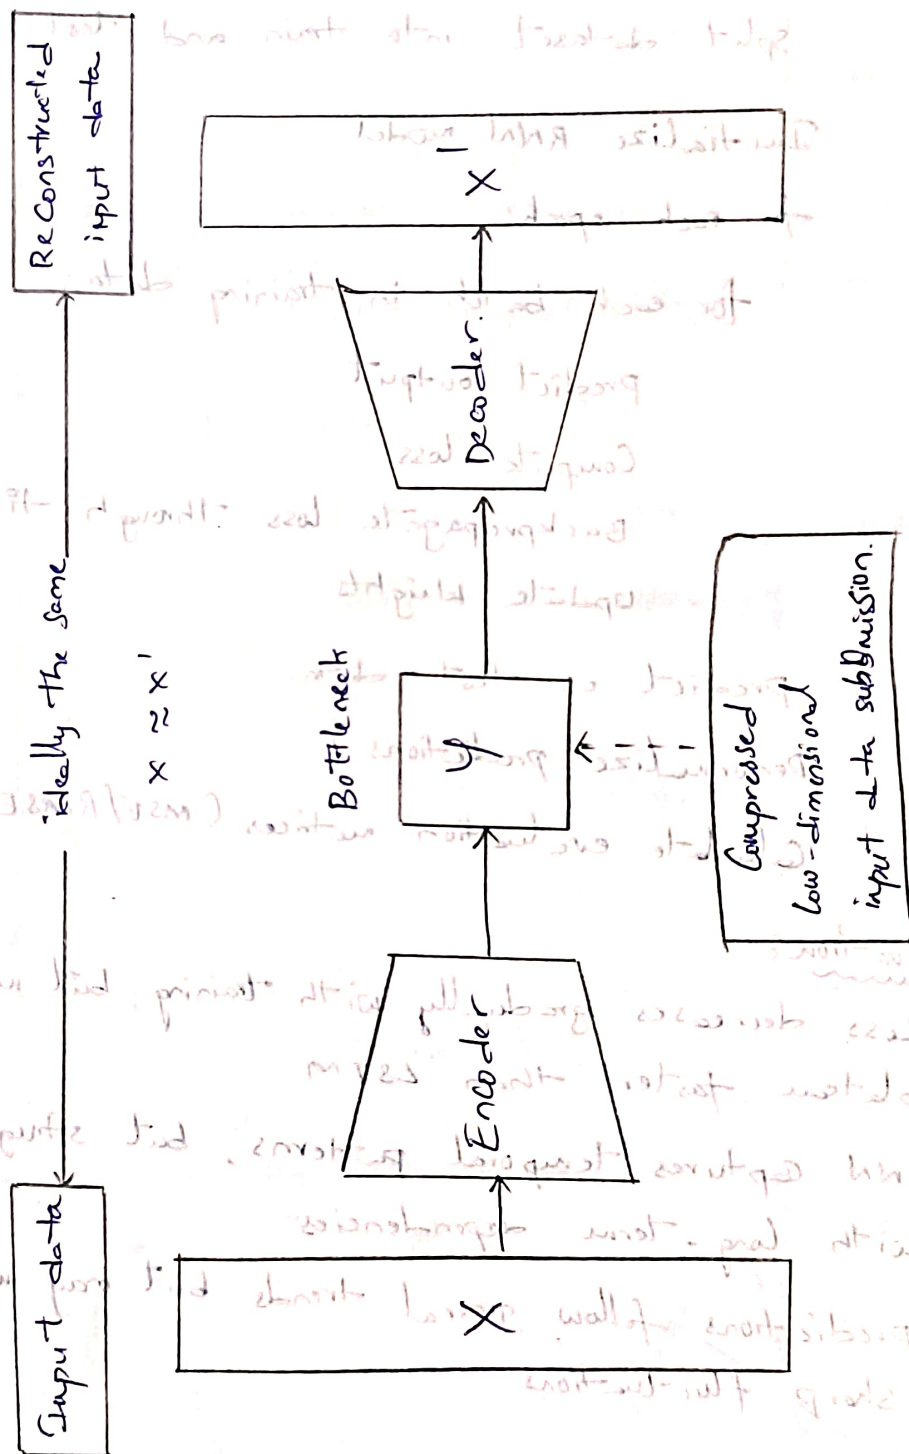 Input data
ideally the same
x ≈ x'
ReConstructed
input data
X
Encoder
Bottleneck
y
Decoder.
X'
Compressed
low-dimensional
input data subdmission.